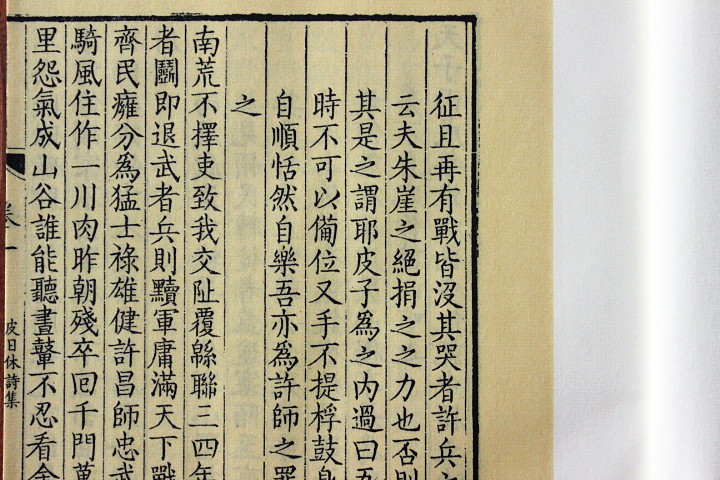 征且再有戰皆沒其哭者許兵之
云夫朱崖之絕捐之之力也否則
其是之謂耶皮子為之內過曰吾
時不可以備位又手不提桴鼓身
自順恬然自樂吾亦為許師之罪
之
南荒不擇吏致我交阯覆緜聯三四年
者鬭即退武者兵則黷軍庸滿天下戰
齊民癰分為猛士祿雄健許昌師忠武
騎風住作一川肉昨朝殘卒回千門萬
里怨氣成山谷誰能聽晝鼙不忍看金
卷一
皮日休詩集